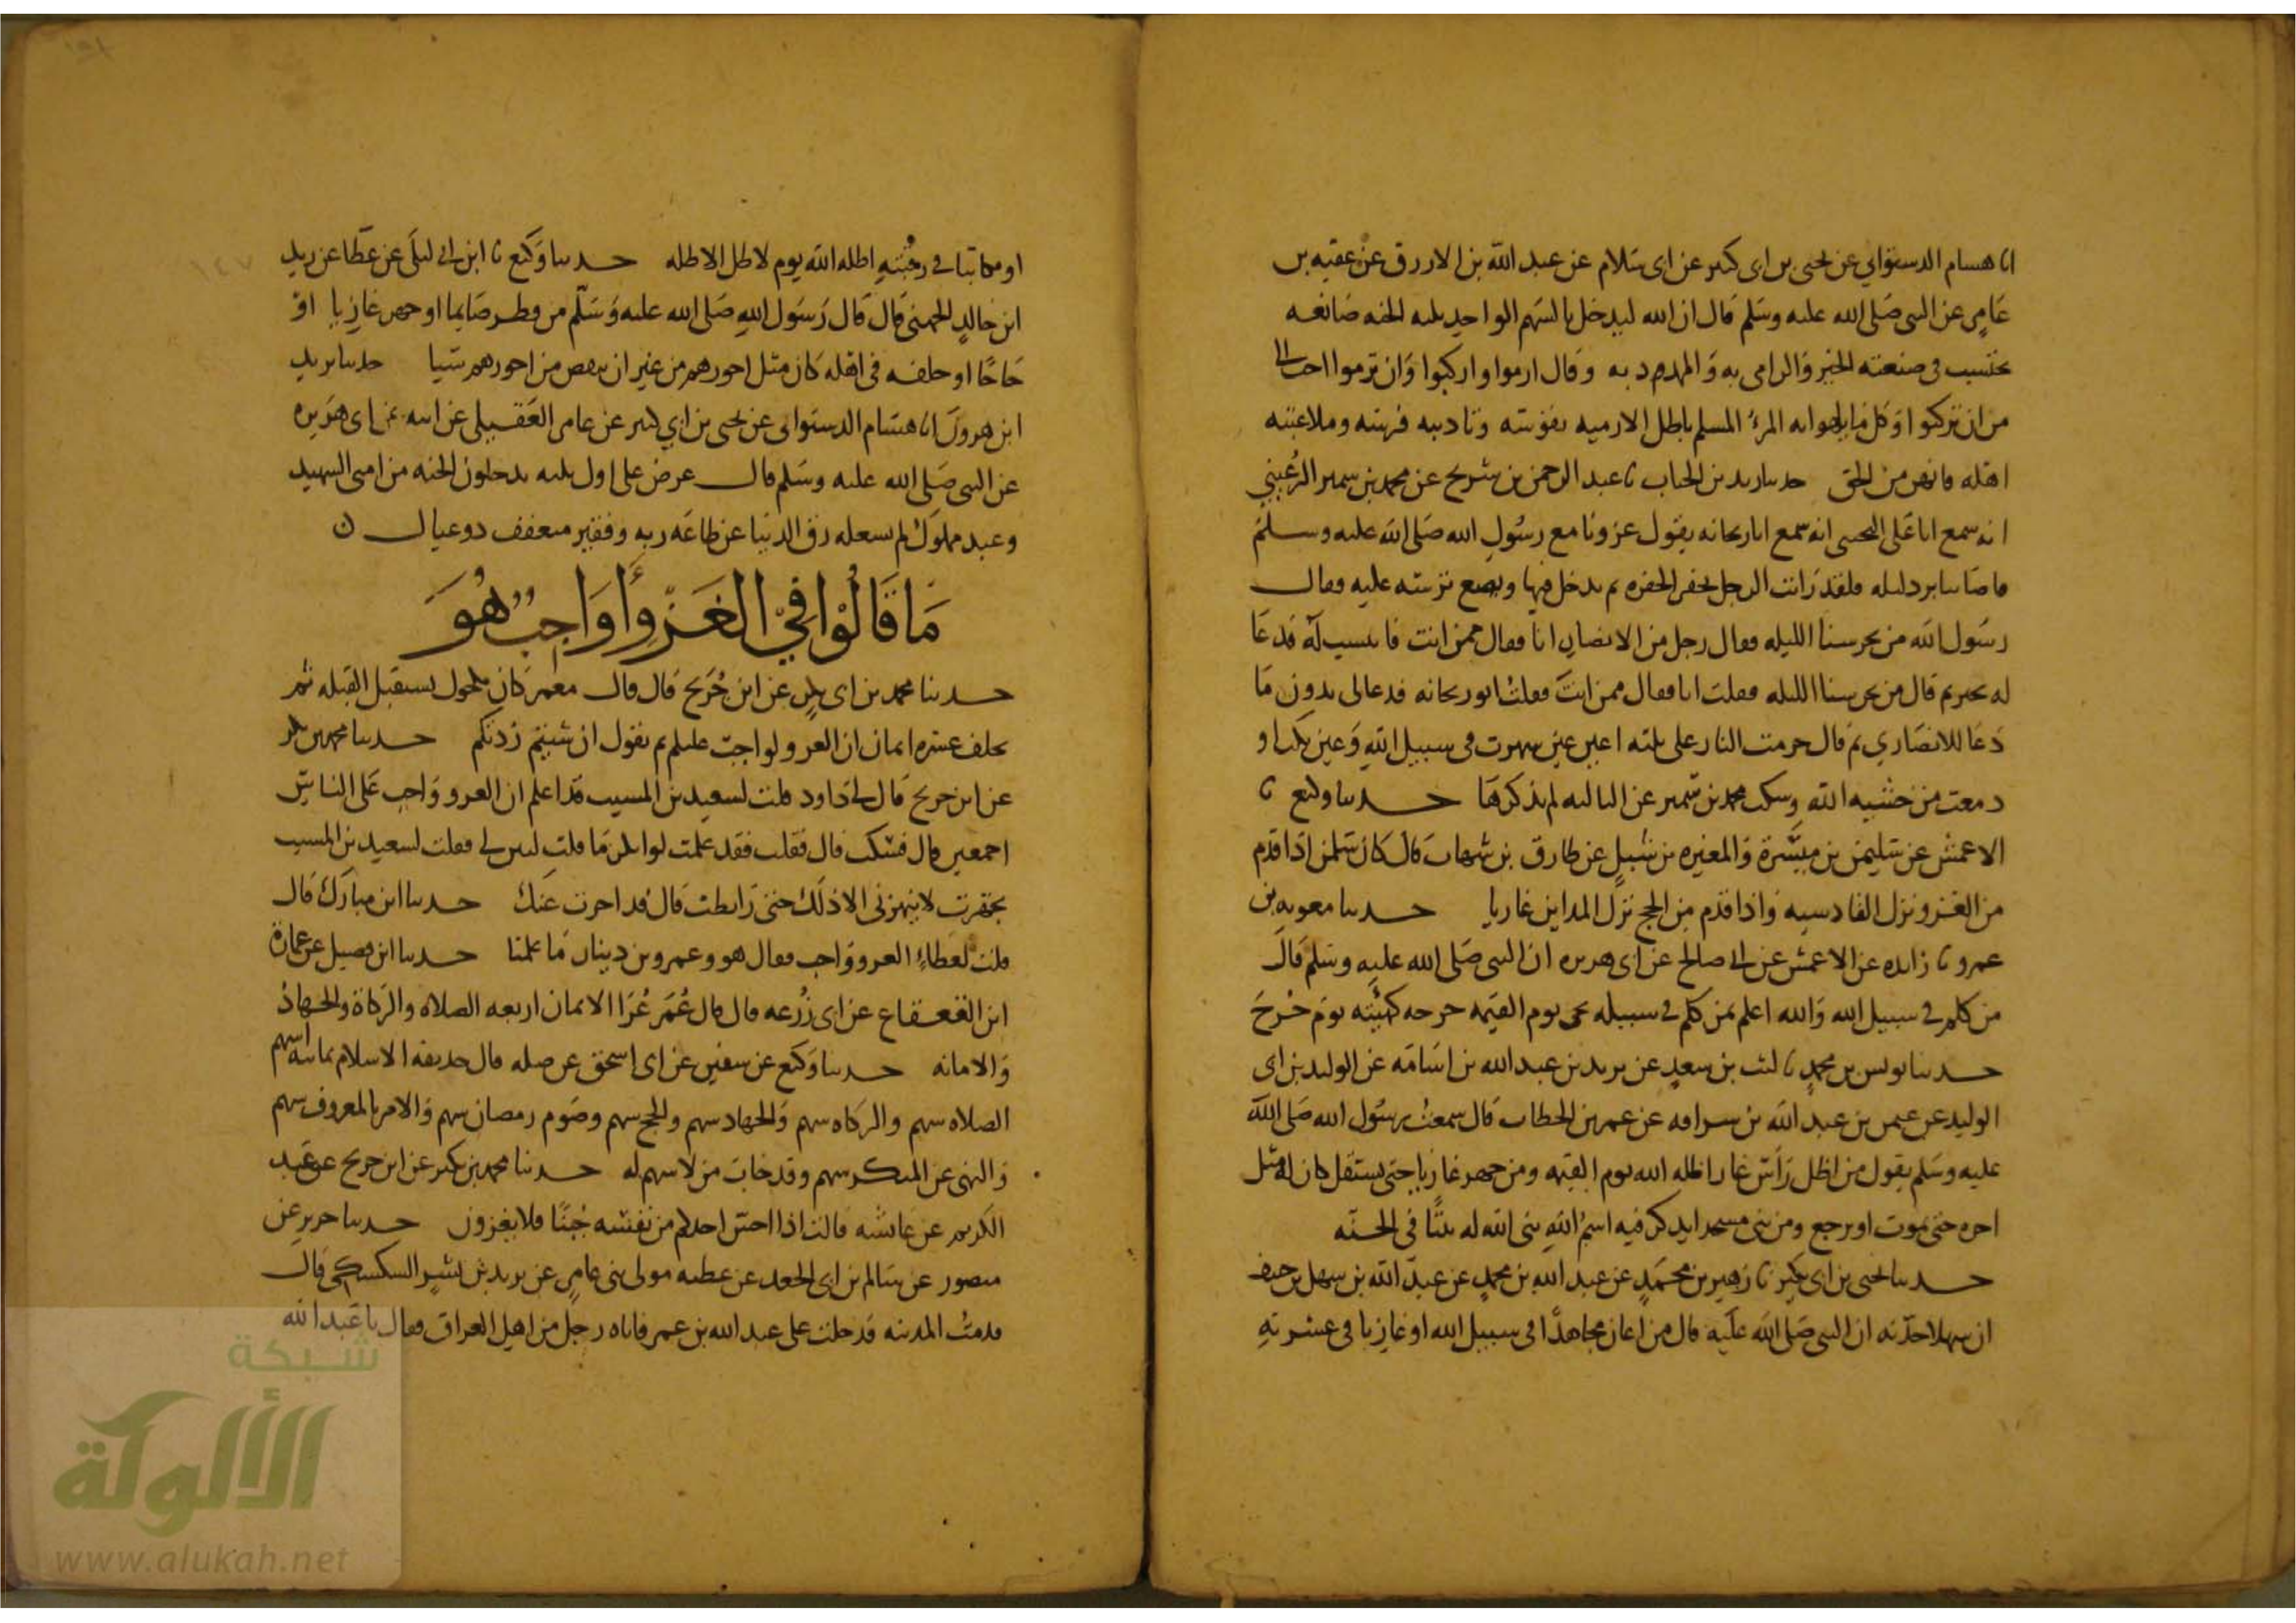 انا هسام الدستوائي عن يحيى بن ابى كثير عن ابى سلام عن عبد الله بن الازرق عن عقبه بن
عامر عن النبى صلى الله عليه وسلم قال ان الله ليدخل بالسهم الواحد ثلثه الجنه صانعه
يحتسب فى صنعته الخير والرامى به والممد به وقال ارموا واركبوا وان ترموا احب الى
من ان تركبوا وكل ما يلهوا به المرء المسلم باطل الا رميه بقوسه وتاديبه فرسه وملاعبته
اهله فانهن من الحق حدثنا زيد بن الحباب ثنا عبد الرحمن بن شريح عن محمد بن سمير الرعيني
انه سمع ابا على التجيبى انه سمع ابا ريحانه يقول غزونا مع رسول الله صلى الله عليه وسلم
فاصابنا برد ليله فلقد رايت الرجل يحفر الحفره ثم يدخل فيها ويضع ترسه عليه فقال
رسول الله من يحرسنا الليله فقال رجل من الانصار انا فقال ممن انت فانتسب له فدعا
له بخير ثم قال من يحرسنا الليله فقلت انا فقال ممن انت فقلت ابو ريحانه فدعا لى بدون ما
دعا للانصاري ثم قال حرمت النار على ثلثه اعين عين سهرت فى سبيل الله وعين بكت او
دمعت من خشيه الله وسكت محمد بن سمير عن الثالثه لم يذكرها حدثنا وكيع ثنا
الاعمش عن سليمن بن ميسرة والمغيره بن شبيل عن طارق بن شهاب قال كان سلمن اذا قدم
من الغزو نزل القادسيه واذا قدم من الحج نزل المداين غازيا حدثنا معويه بن
عمرو ثنا زايده عن الاعمش عن ابي صالح عن ابى هريره ان النبى صلى الله عليه وسلم قال
من كلم في سبيل الله والله اعلم بمن كلم في سبيله يجى يوم القيمه جرحه كهيئته يوم جرح
حدثنا يونس بن محمد ثنا ليث بن سعد عن يزيد بن عبد الله بن اسامه عن الوليد بن ابى
الوليد عن عثمن بن عبد الله بن سراقه عن عمر بن الخطاب قال سمعت رسول الله صلى الله
عليه وسلم يقول من اظل راس غاز اظله الله يوم القيمه ومن جهز غازيا حتى يستقل كان له مثل
اجره حتى يموت او يرجع ومن بنى مسجدا يذكر فيه اسم الله بنى الله له بيتا فى الجنه
حدثنا يحيى بن ابى بكير ثنا زهير بن محمد عن عبد الله بن محمد عن عبد الله بن سهل بن حنيف
ان سهلا حدثه ان النبى صلى الله عليه قال من اعان مجاهدا فى سبيل الله او غازيا فى عسرته
او مكاتبا في رقبته اظله الله يوم لا ظل الا ظله حدثنا وكيع ثنا ابن ابي ليلى عن عطا عن زيد
ابن خالد الجهنى قال قال رسول الله صلى الله عليه وسلم من فطر صايما او جهز غازيا او
حاجا او خلفه فى اهله كان مثل اجورهم من غير ان ينقص من اجورهم شيا حدثنا يزيد
ابن هرون انا هشام الدستوائى عن يحيى بن ابي كثير عن عامر العقيلى عن ابيه عن ابى هريره
عن النبى صلى الله عليه وسلم قال عرض على اول ثلثه يدخلون الجنه من امتى الشهيد
وعبد مملوك لم يشغله رق الدنيا عن طاعه ربه وفقير متعفف ذو عيال ن
ما قالوا في الغزو أواجب هو
حدثنا محمد بن ابى بكر عن ابن جريج قال قال معمر كان مكحول يستقبل القبله ثم
يحلف عشره ايمان ان الغزو لواجب عليكم ثم يقول ان شيتم زدتكم حدثنا محمد بن بكر
عن ابن جريج قال لى داود قلت لسعيد بن المسيب قد اعلم ان الغزو واجب على الناس
اجمعين قال فسكت قال فقلت فقد علمت لو انكر ما قلت لبين لى فقلت لسعيد بن المسيب
تجهزت لا ينهزنى الا ذلك حتى رابطت قال قد اجزت عنك حدثنا ابن مبارك قال
قلت لعطاء الغزو واجب فقال هو وعمرو بن دينار ما علمنا حدثنا ابن فضيل عن عمارة
ابن القعقاع عن ابى زرعه قال قال عمر عرا الايمان اربعه الصلاه والزكاة والجهاد
والامانه حدثنا وكيع عن سفين عن ابى اسحق عن صله قال حذيفه الاسلام ثمانيه اسهم
الصلاه سهم والزكاه سهم والجهاد سهم والحج سهم وصوم رمضان سهم والامر بالمعروف سهم
والنهى عن المنكر سهم وقد خاب من لا سهم له حدثنا محمد بن بكير عن ابن جريج عن عبد
الكريم عن عائشه قالت اذا احس احدكم من نفسه جبنا فلا يغزون حدثنا جرير عن
منصور عن سالم بن ابى الجعد عن عطيه مولى بنى عامر عن يزيد بن بشير السكسكى قال
قدمت المدينه فدخلت على عبد الله بن عمر فاتاه رجل من اهل العراق فقال يا عبد الله
شبكة
الألوكة
www.alukah.net